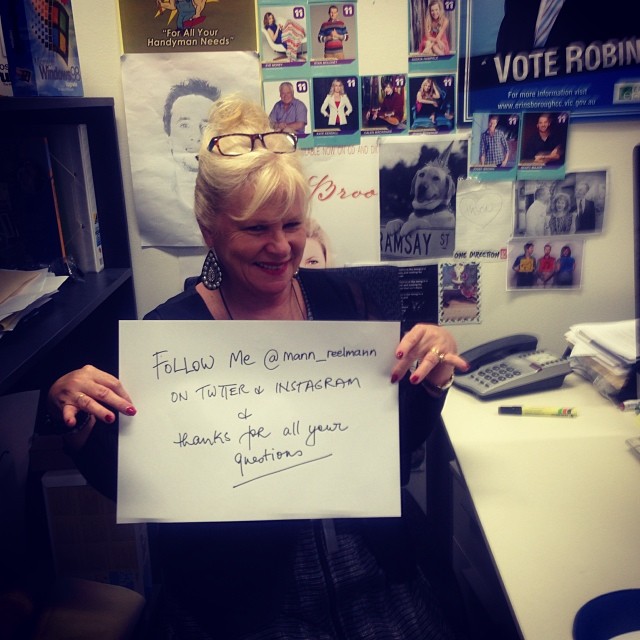 "For All Your
Handyman Needs"
VOTE ROBIN
For more information visit
www.erinsborough.vic.gov.au
Broo
RAMSAY ST
ONE DIRECTION
FOLLOW Me @mann_reelmann
ON TWTTER & INSTAGRAM
&
thanks for all your
questions